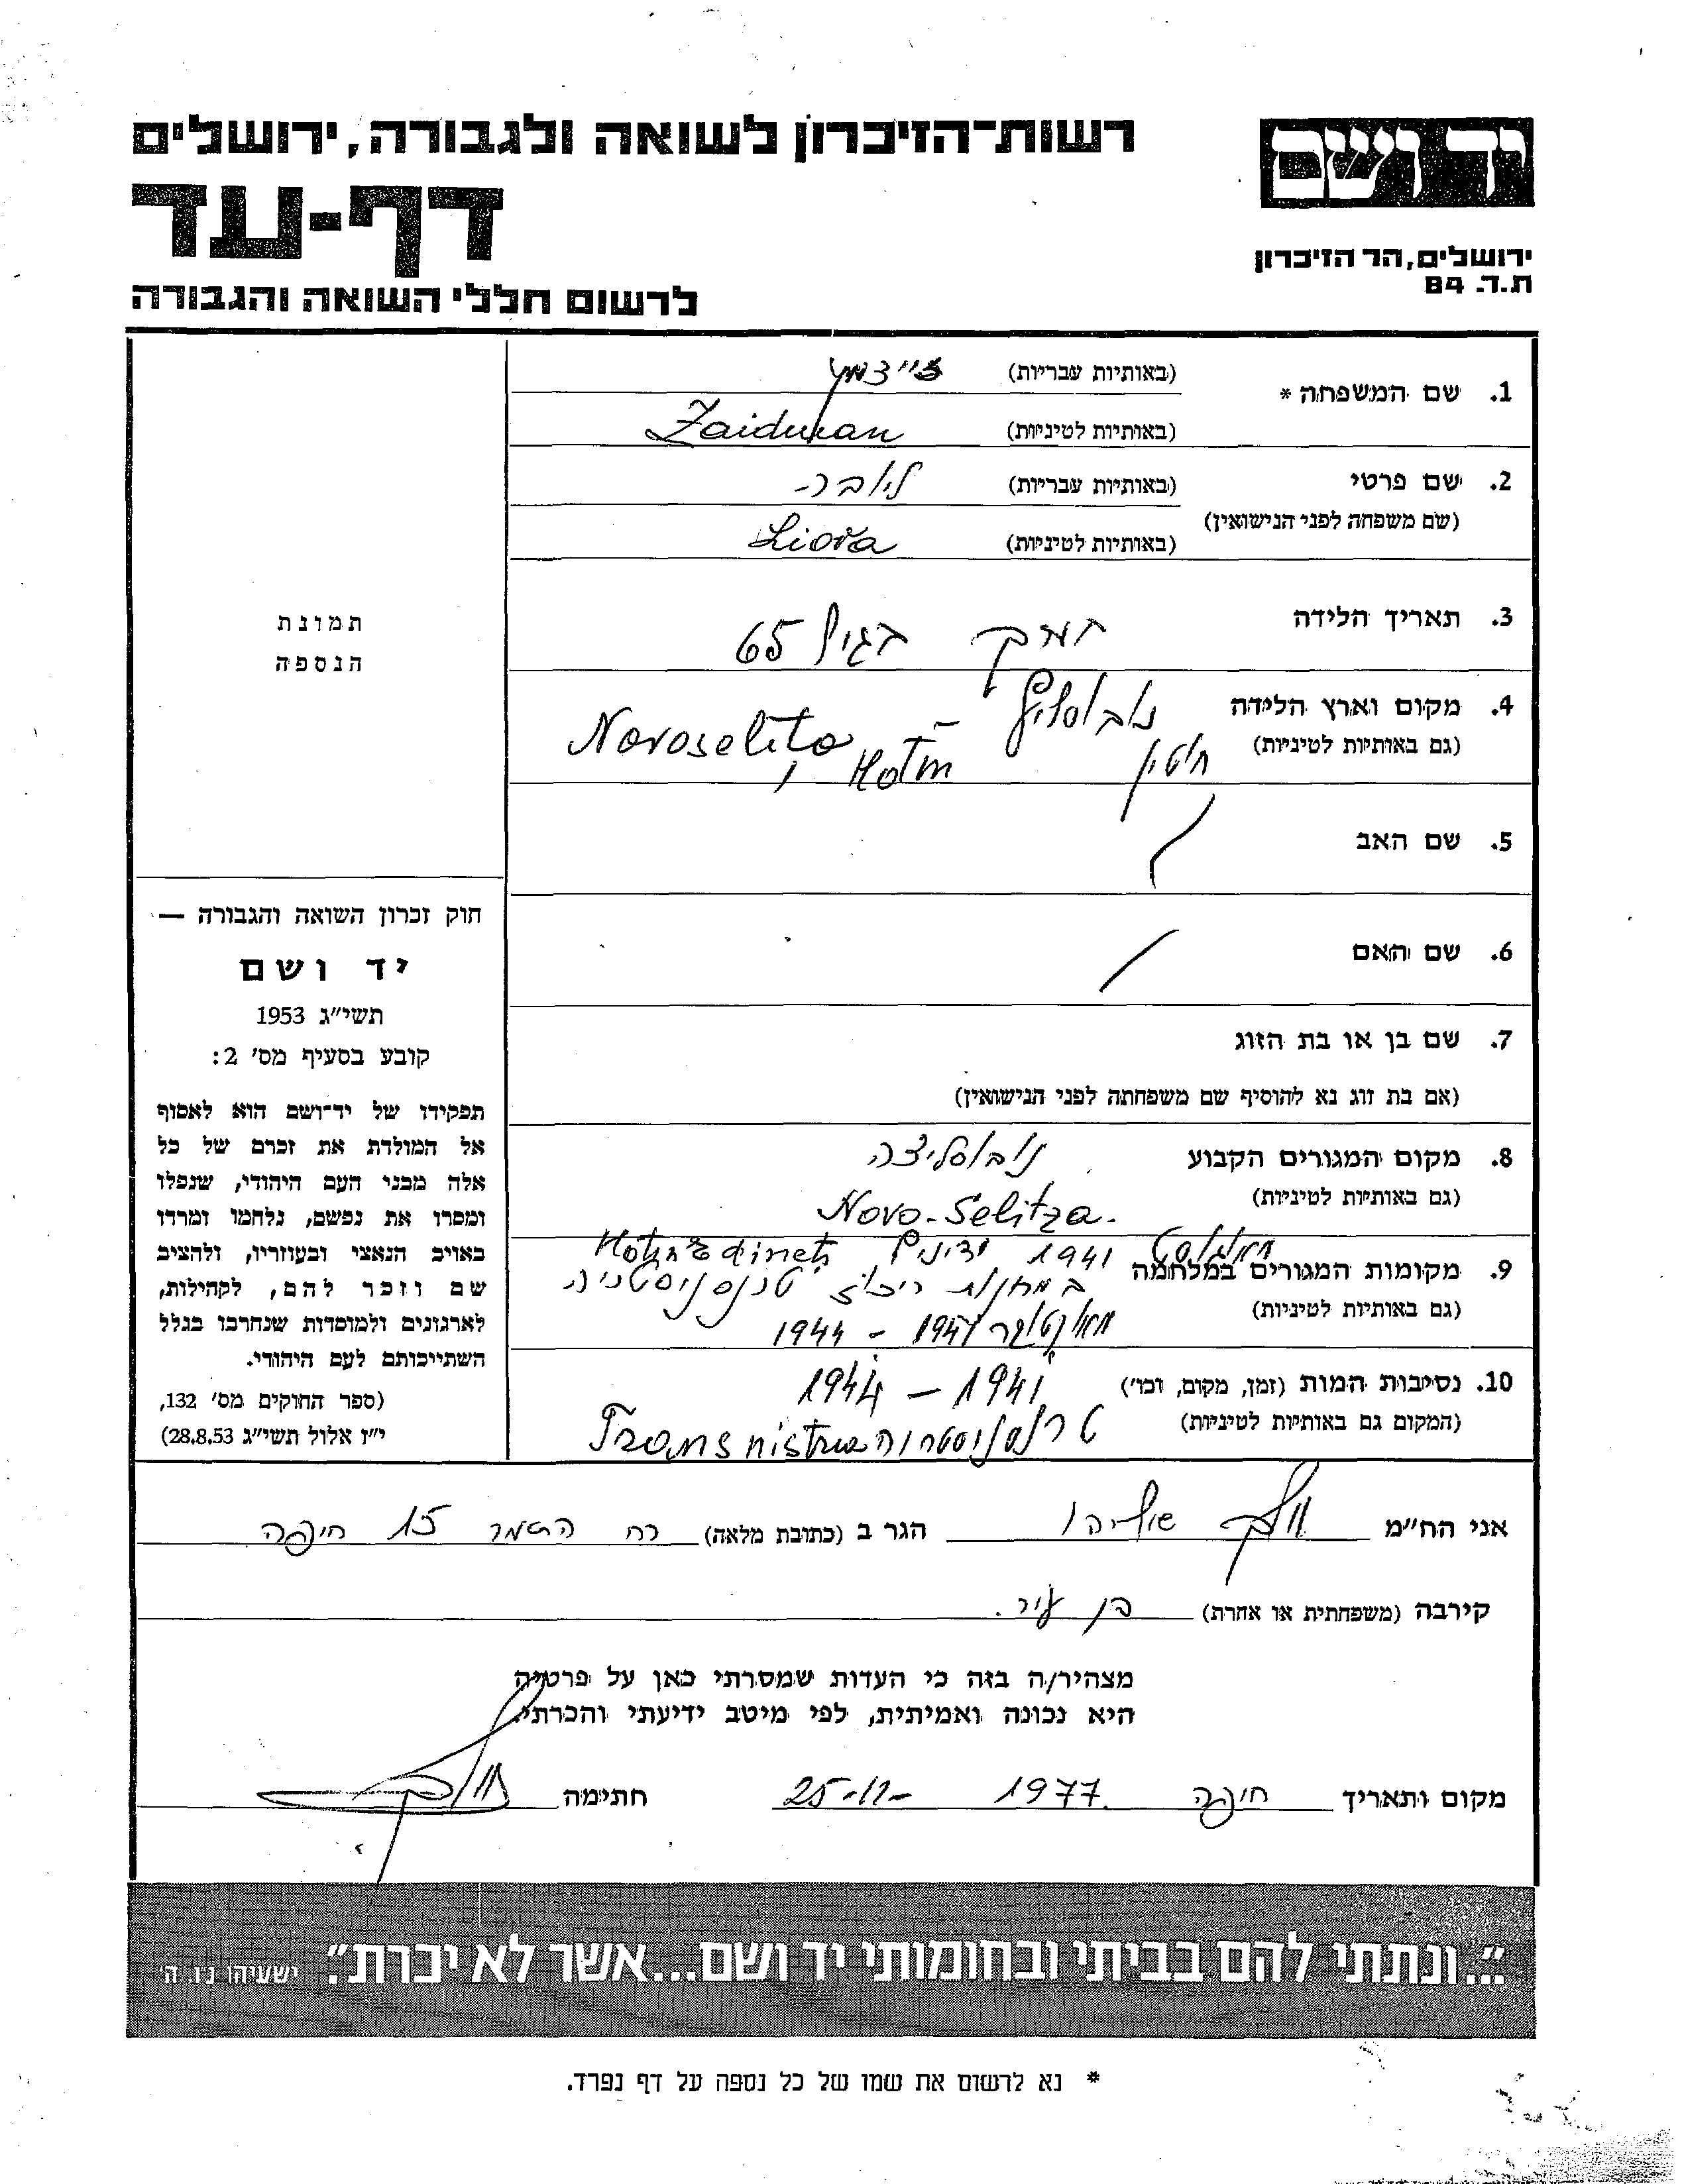 רשות-הזיכרון לשואה ולגבורה, ירושלים
דף-עד
לרשום חללי השואה והגבורה
יד ושם
ירושלים, הר הזיכרון
ת.ד. 84
1. שם המשפחה *
(באותיות עבריות)
(באותיות לטיניות) Zaidman
2. שם פרטי
(באותיות עבריות)
(שם משפחה לפני הנישואין)
(באותיות לטיניות)
3. תאריך הלידה
בגיל 65
4. מקום וארץ הלידה
(גם באותיות לטיניות)
Novoselița - Hotin
חוטין
5. שם האב
6. שם האם
7. שם בן או בת הזוג
(אם בת זוג נא להוסיף שם משפחתה לפני הנישואין)
8. מקום המגורים הקבוע נובוסליצה
(גם באותיות לטיניות)
Novo-Selitza.
9. מקומות המגורים במלחמה
(גם באותיות לטיניות)
מאוגוסט 1941
במחנות טרנסניסטריה
מאוקטובר 1941 - 1944
10. נסיבות המות (זמן, מקום, וכו') 1941 - 1944
(המקום גם באותיות לטיניות)
טרנסניסטריה Transnistria
תמונת
הנספה
חוק זכרון השואה והגבורה —
יד ושם
תשי"ג 1953
קובע בסעיף מס' 2:
תפקידו של יד-ושם הוא לאסוף
אל המולדת את זכרם של כל
אלה מבני העם היהודי, שנפלו
ומסרו את נפשם, נלחמו ומרדו
באויב הנאצי ובעוזריו, ולהציב
שם וזכר להם, לקהילות,
לארגונים ולמוסדות שנחרבו בגלל
השתייכותם לעם היהודי.
(ספר החוקים מס' 132,
י"ז אלול תשי"ג 28.8.53)
אני הח"מ הגר ב (כתובת מלאה) רח התמר 15 חיפה
קירבה (משפחתית או אחרת) בן עיר.
מצהיר/ה בזה כי העדות שמסרתי כאן על פרטיה
היא נכונה ואמיתית, לפי מיטב ידיעתי והכרתי.
מקום ותאריך חיפה 1977 25-11- חתימה
"...ונתתי להם בביתי ובחומותי יד ושם...אשר לא יכרת". ישעיהו נ"ו, ה'
* נא לרשום את שמו של כל נספה על דף נפרד.